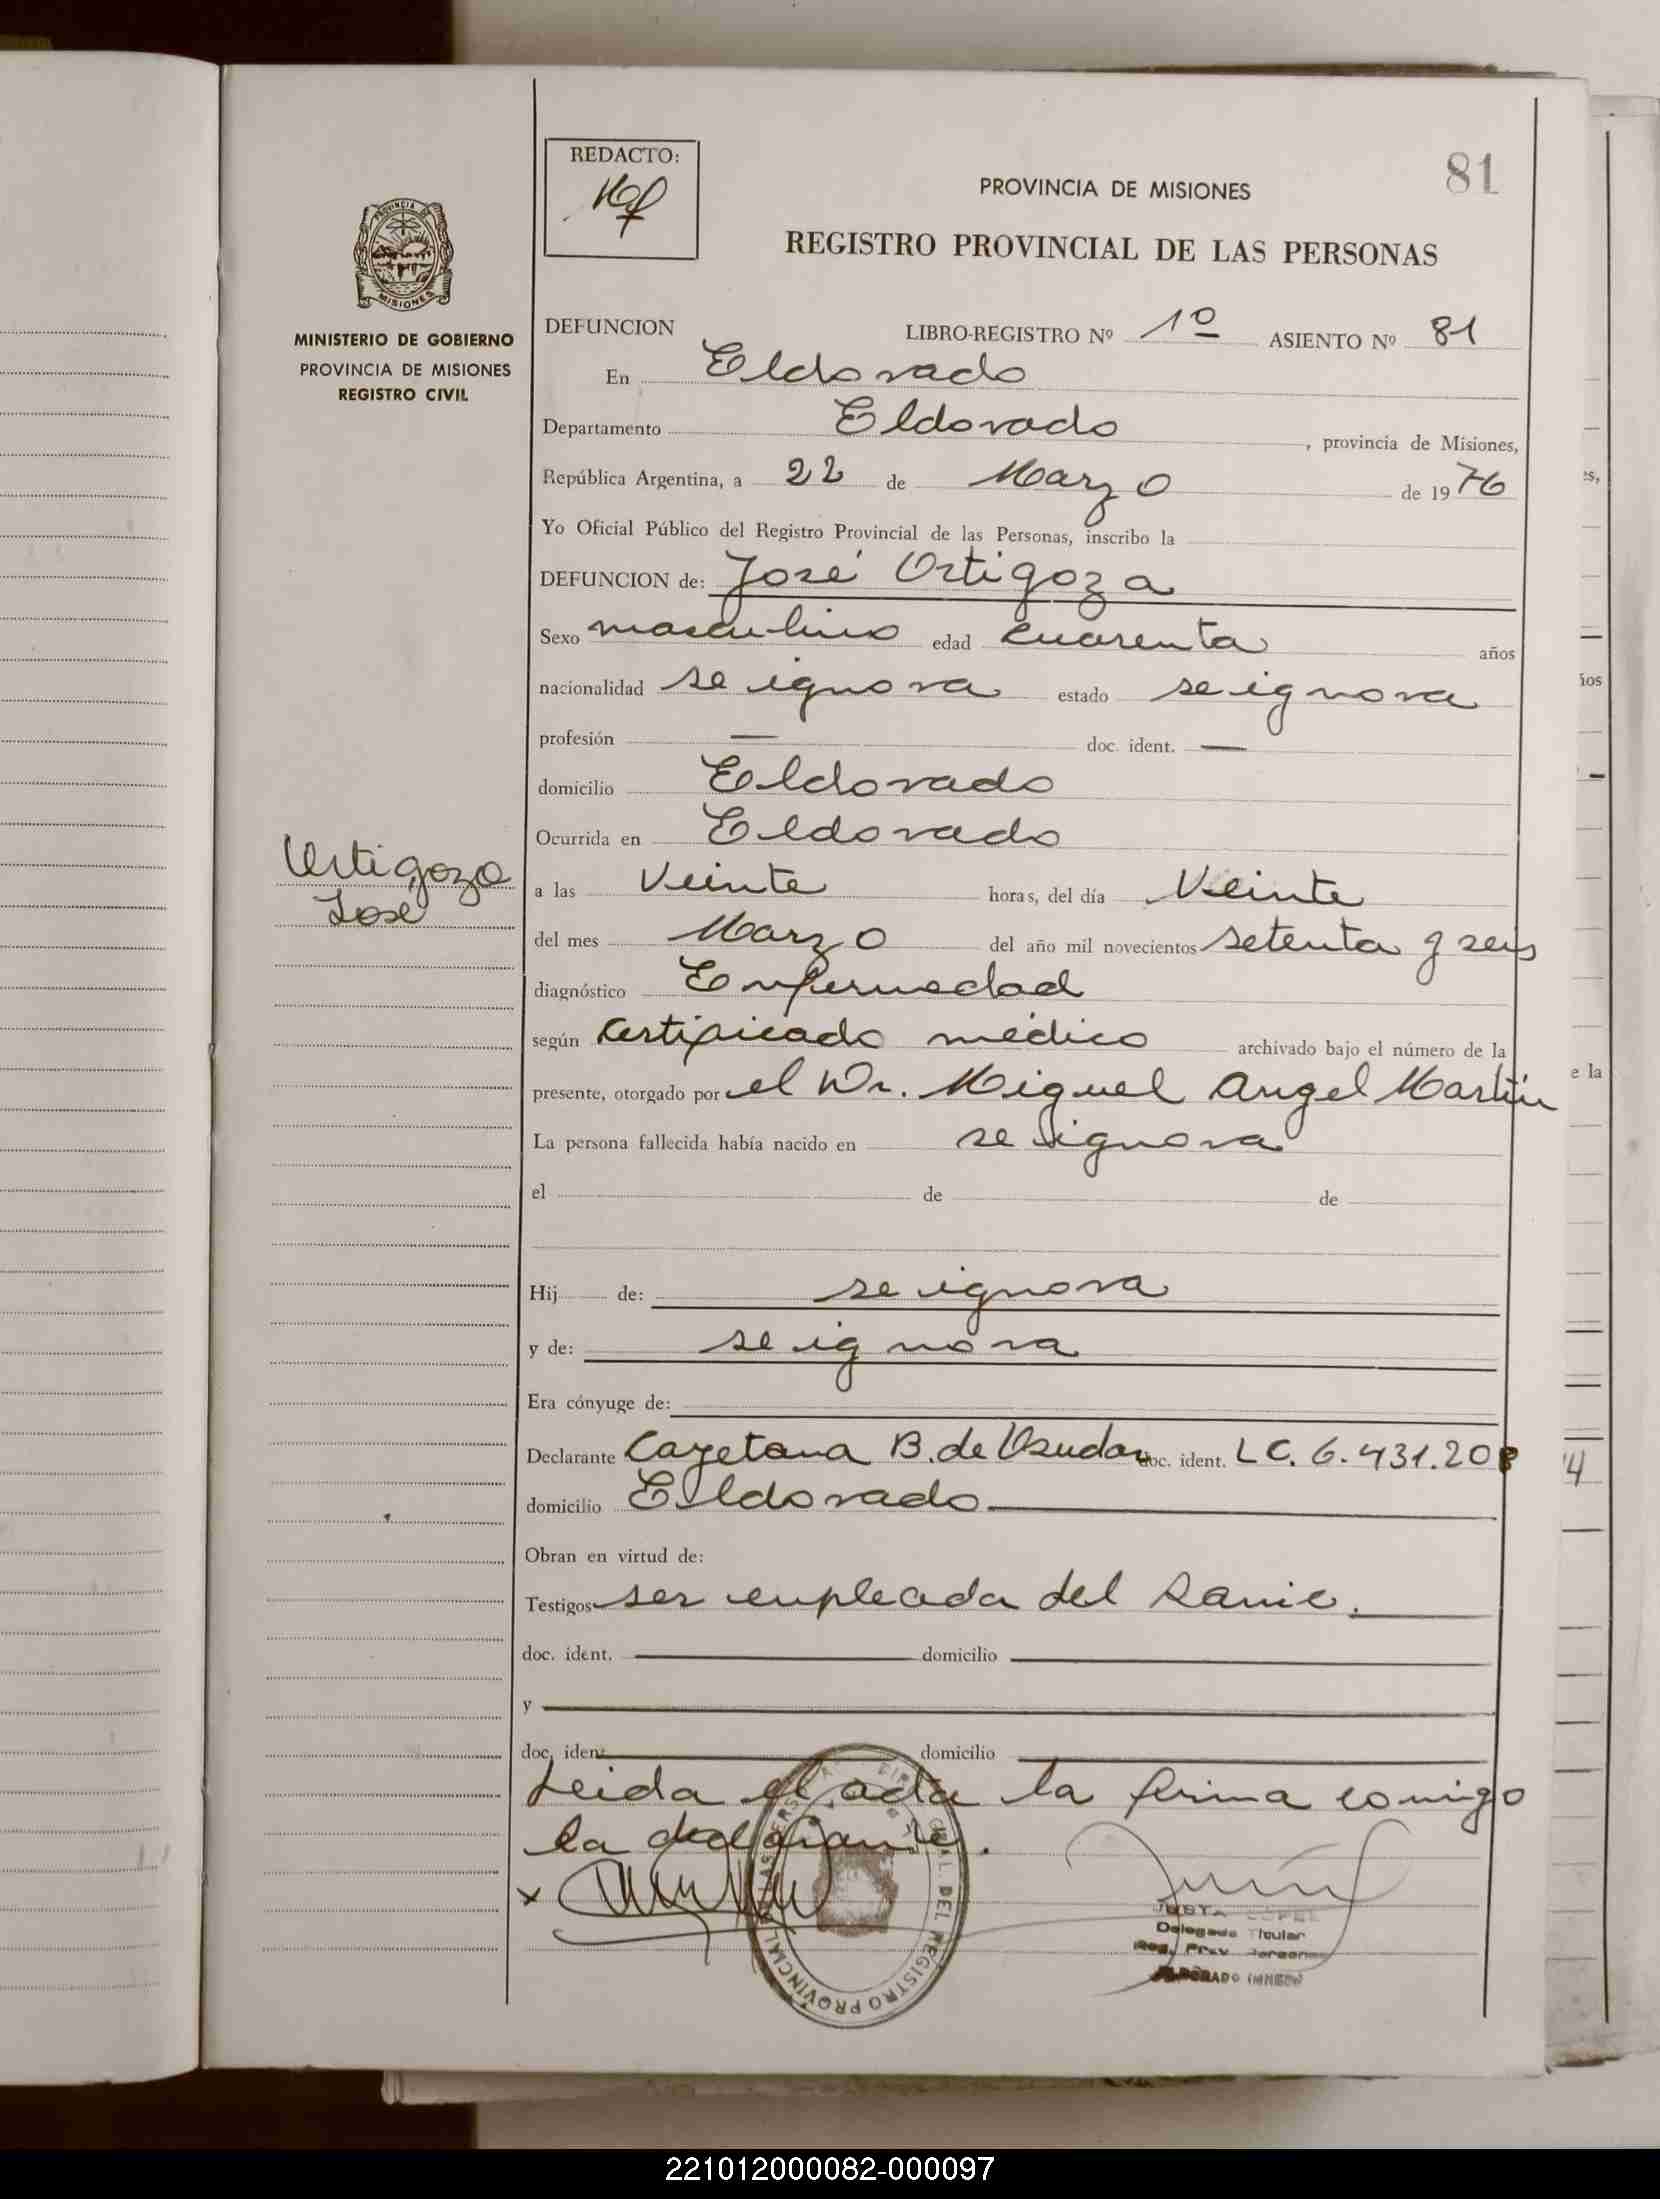 81
REDACTO:
PROVINCIA DE MISIONES
REGISTRO PROVINCIAL DE LAS PERSONAS
PROVINCIA DE
MISIONES
MINISTERIO DE GOBIERNO
PROVINCIA DE MISIONES
REGISTRO CIVIL
DEFUNCION LIBRO-REGISTRO Nº 1º ASIENTO Nº 81
En Eldorado
Departamento Eldorado, provincia de Misiones,
República Argentina, a 22 de Marzo de 1976
Yo Oficial Público del Registro Provincial de las Personas, inscribo la
DEFUNCION de: José Ortigoza
Sexo masculino edad cuarenta años
nacionalidad se ignora estado se ignora
profesión — doc. ident. —
domicilio Eldorado
Ocurrida en Eldorado
Ortigoza
José
a las Veinte horas, del día Veinte
del mes Marzo del año mil novecientos setenta y seis
diagnóstico Enfermedad
según Certificado médico archivado bajo el número de la
presente, otorgado por el Dr. Miguel Angel Martin
La persona fallecida había nacido en se ignora
el de de
Hij de: se ignora
y de: se ignora
Era cónyuge de:
Declarante Cayetana B. de doc. ident. L C. 6.431.208
domicilio Eldorado
Obran en virtud de:
Testigos ser empleada del
doc. ident. domicilio
y
doc. ident. domicilio
Leida el acta la firma conmigo
la declarante.
x
REGISTRO PROVINCIAL
Delegada Titular
Reg. Prov. Personas
ELDORADO
221012000082-000097